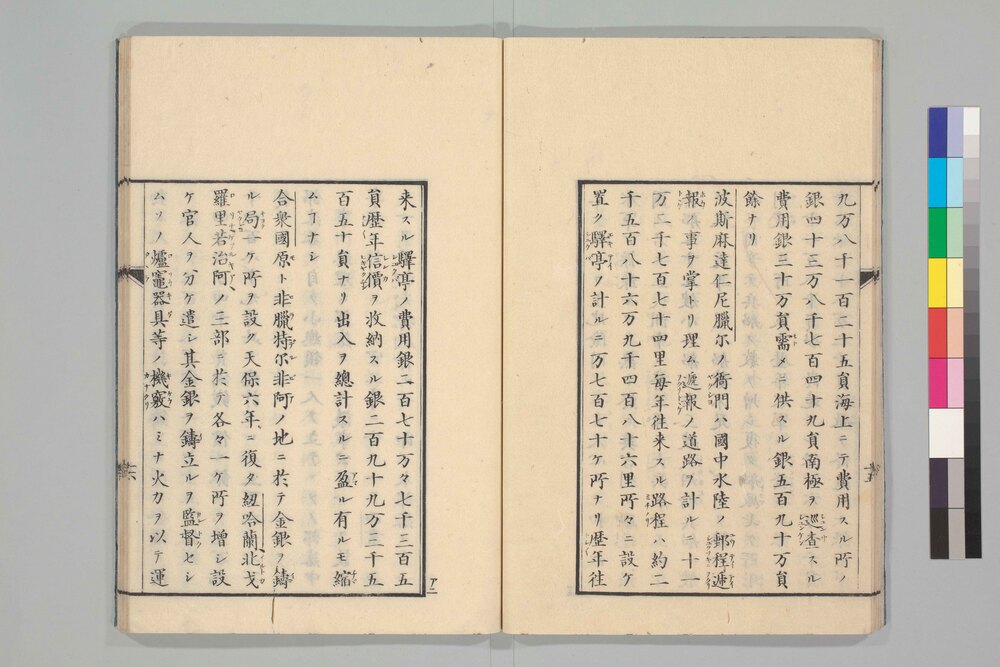 九万八千一百二十五員海上ニテ費用スル所ノ
銀四十三万八千七百四十九員南極ヲ巡査スル
費用銀三十万員需メニ供スル銀五百九十万員
餘ナリ
波斯麻達仁尼臘尓ノ衙門ハ國中水陸ノ郵程遞
報ノ事ヲ掌トリ理ム遞報ノ道路ヲ計ルニ十一
万二千七百七十四里毎年往来スル路程ハ約二
千五百八十六万九千四百八十六里所々ニ設ケ
置ク驛亭ノ計ルニ万七百七十ケ所ナリ歴年往
来スル驛亭ノ費用銀二百七十万々七千三百五
員歴年信價ヲ收納スル銀二百九十九万三千五
百五十員ナリ出入ヲ總計スルニ盈ル有ルモ縮
ムコナシ
合衆國原ト非臘特尓非阿ノ地ニ於テ金銀ヲ鑄
ル局一ケ所ヲ設ク天保六年ニ復タ紐咯蘭北戈
羅里若治阿ノ三部ニ於テ各々一ケ所ヲ増シ設
ケ官人ヲ分ケ遣シ其金銀ヲ鑄立ルヲ監督セシ
ムソノ爐竈器具等ノ機竅ハミナ火力ヲ以テ運